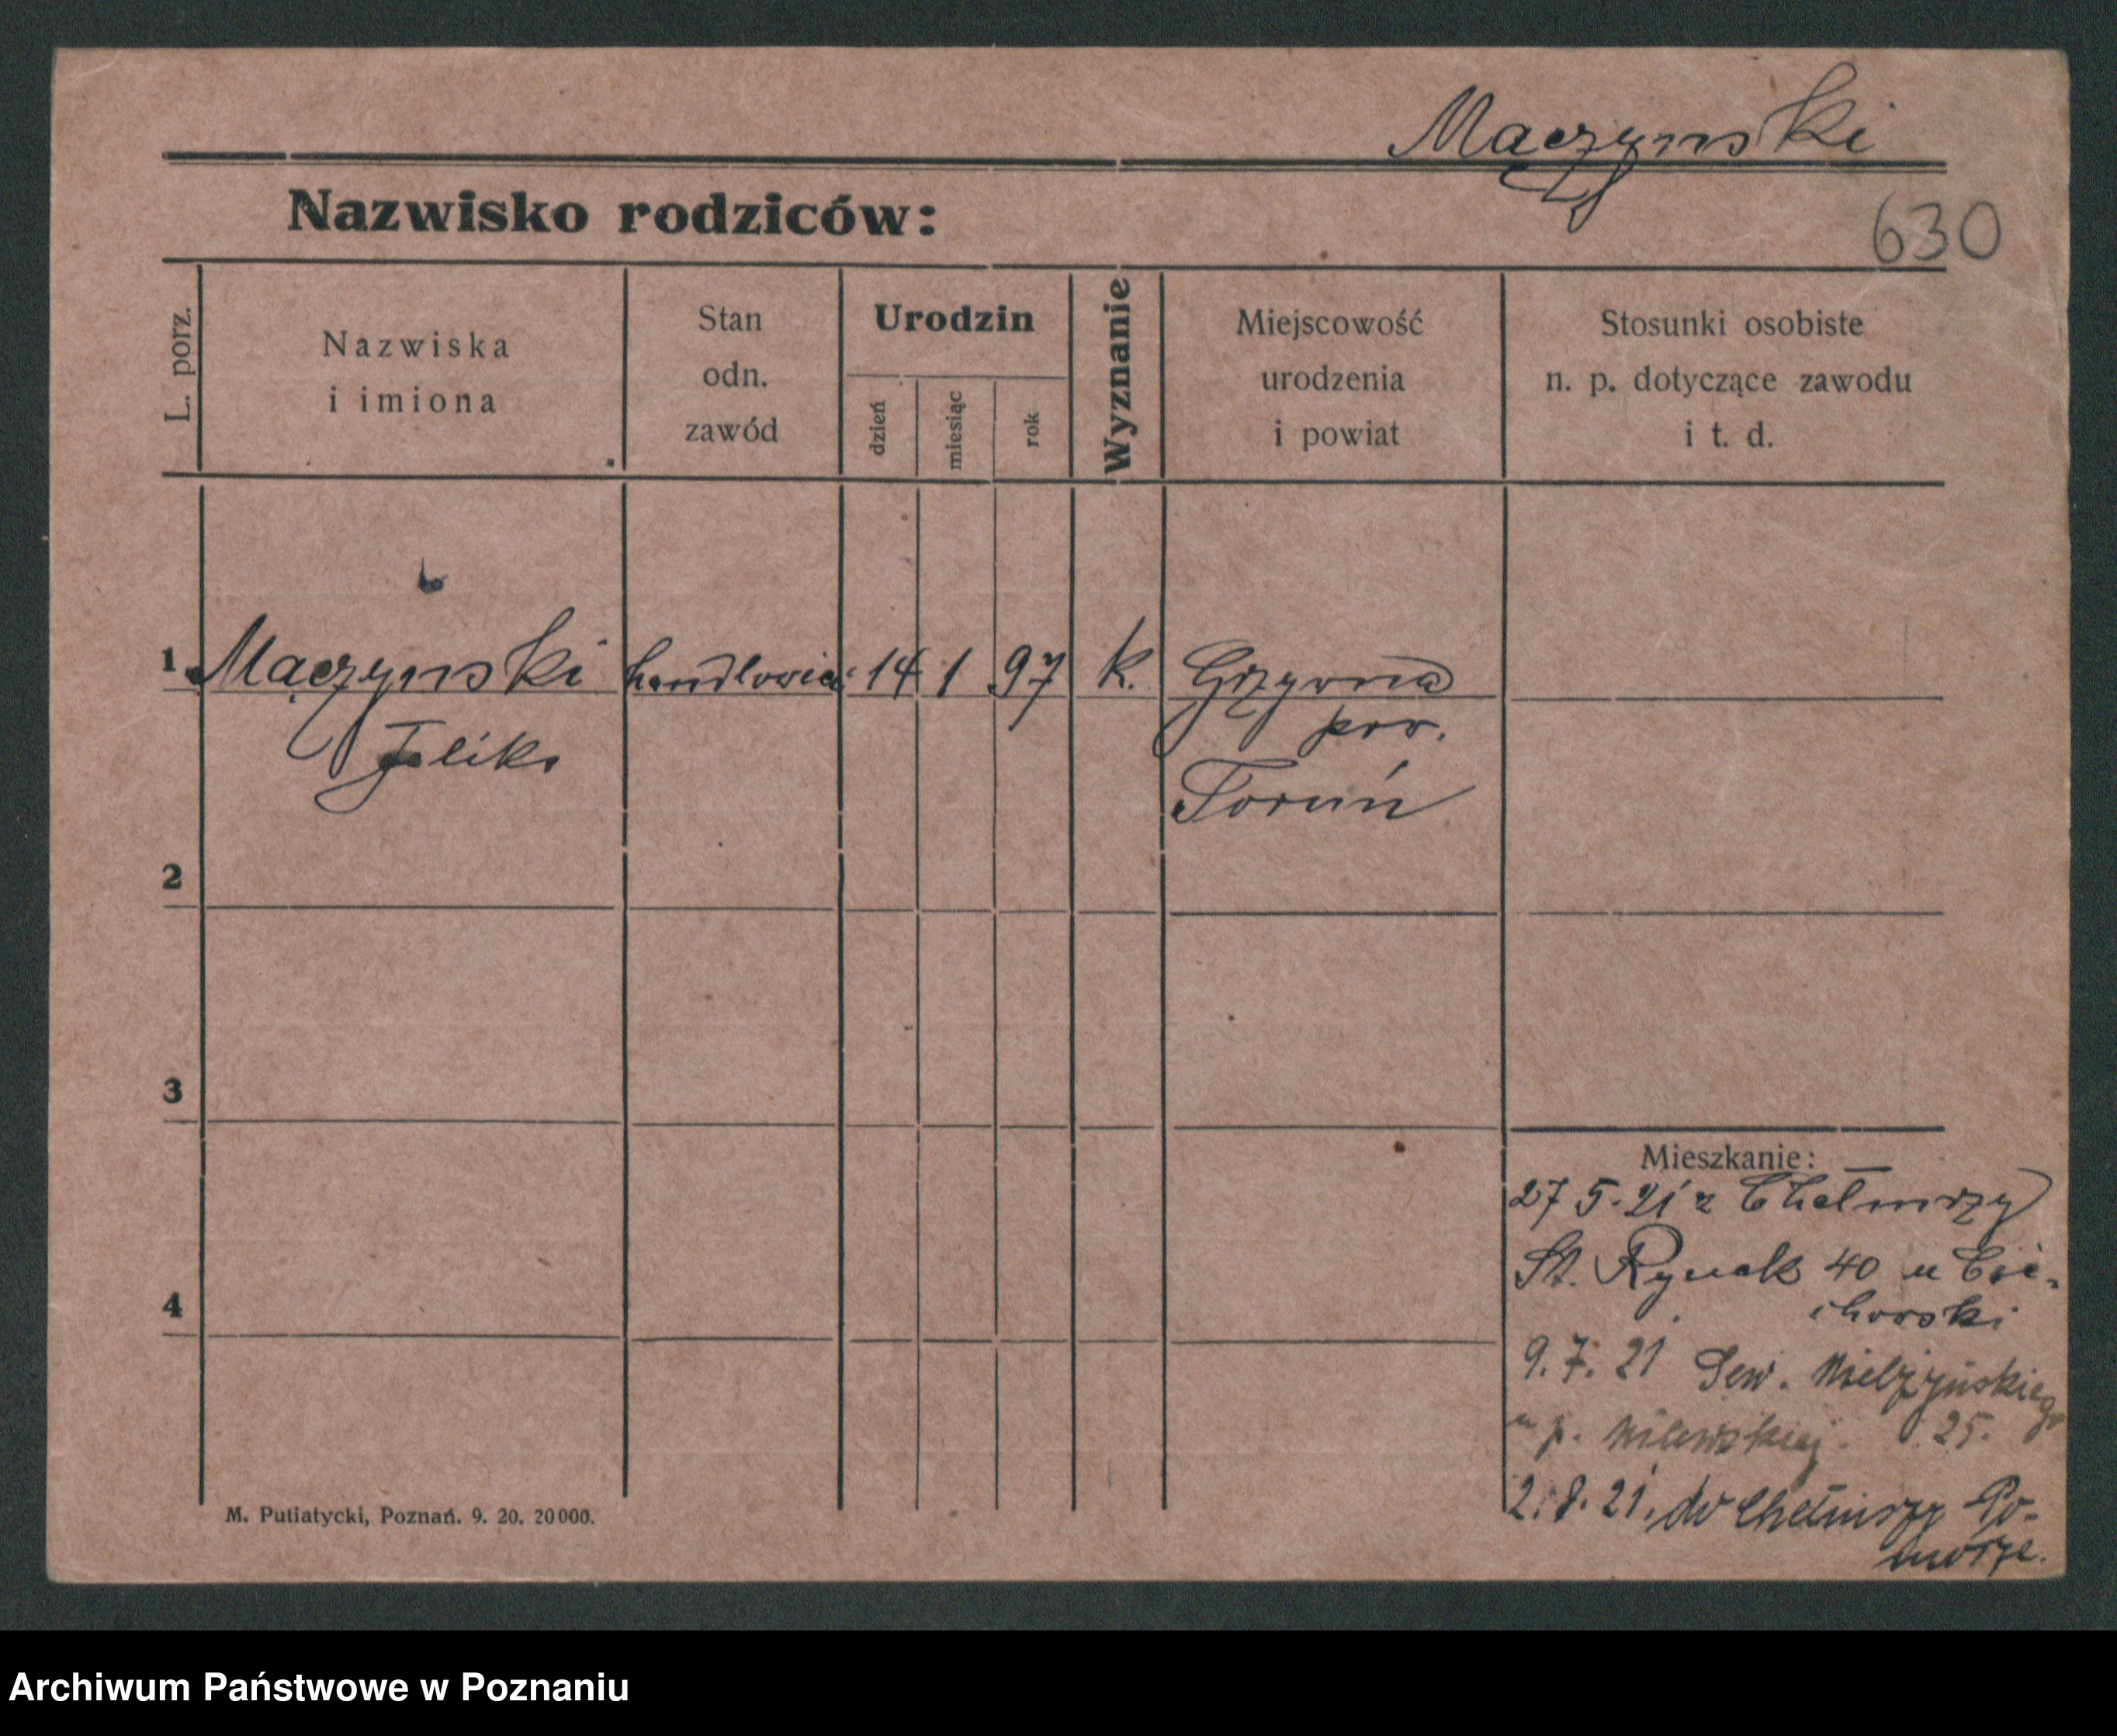 Mączynski
630
Nazwisko rodziców:
L. porz.
Nazwiska
i imiona
Stan
odn.
zawód
Urodzin
dzień
miesiąc
rok
Wyznanie
Miejscowość
urodzenia
i powiat
Stosunki osobiste
n. p. dotyczące zawodu
i t. d.
1 Mączynski handlowiec 14 1 97 k. Grzywna
pow.
Feliks
Toruń
2
3
4
Mieszkanie:
27 5. 21 z Chełmży
St. Rynek 40 u Cie-
chorski
9. 7. 21 Sew. Mielżyńskiego
u p. Milewskiej. 25.
2. 8. 21. do Chełmży Po-
morze.
M. Putiatycki, Poznań. 9. 20. 20000.
Archiwum Państwowe w Poznaniu